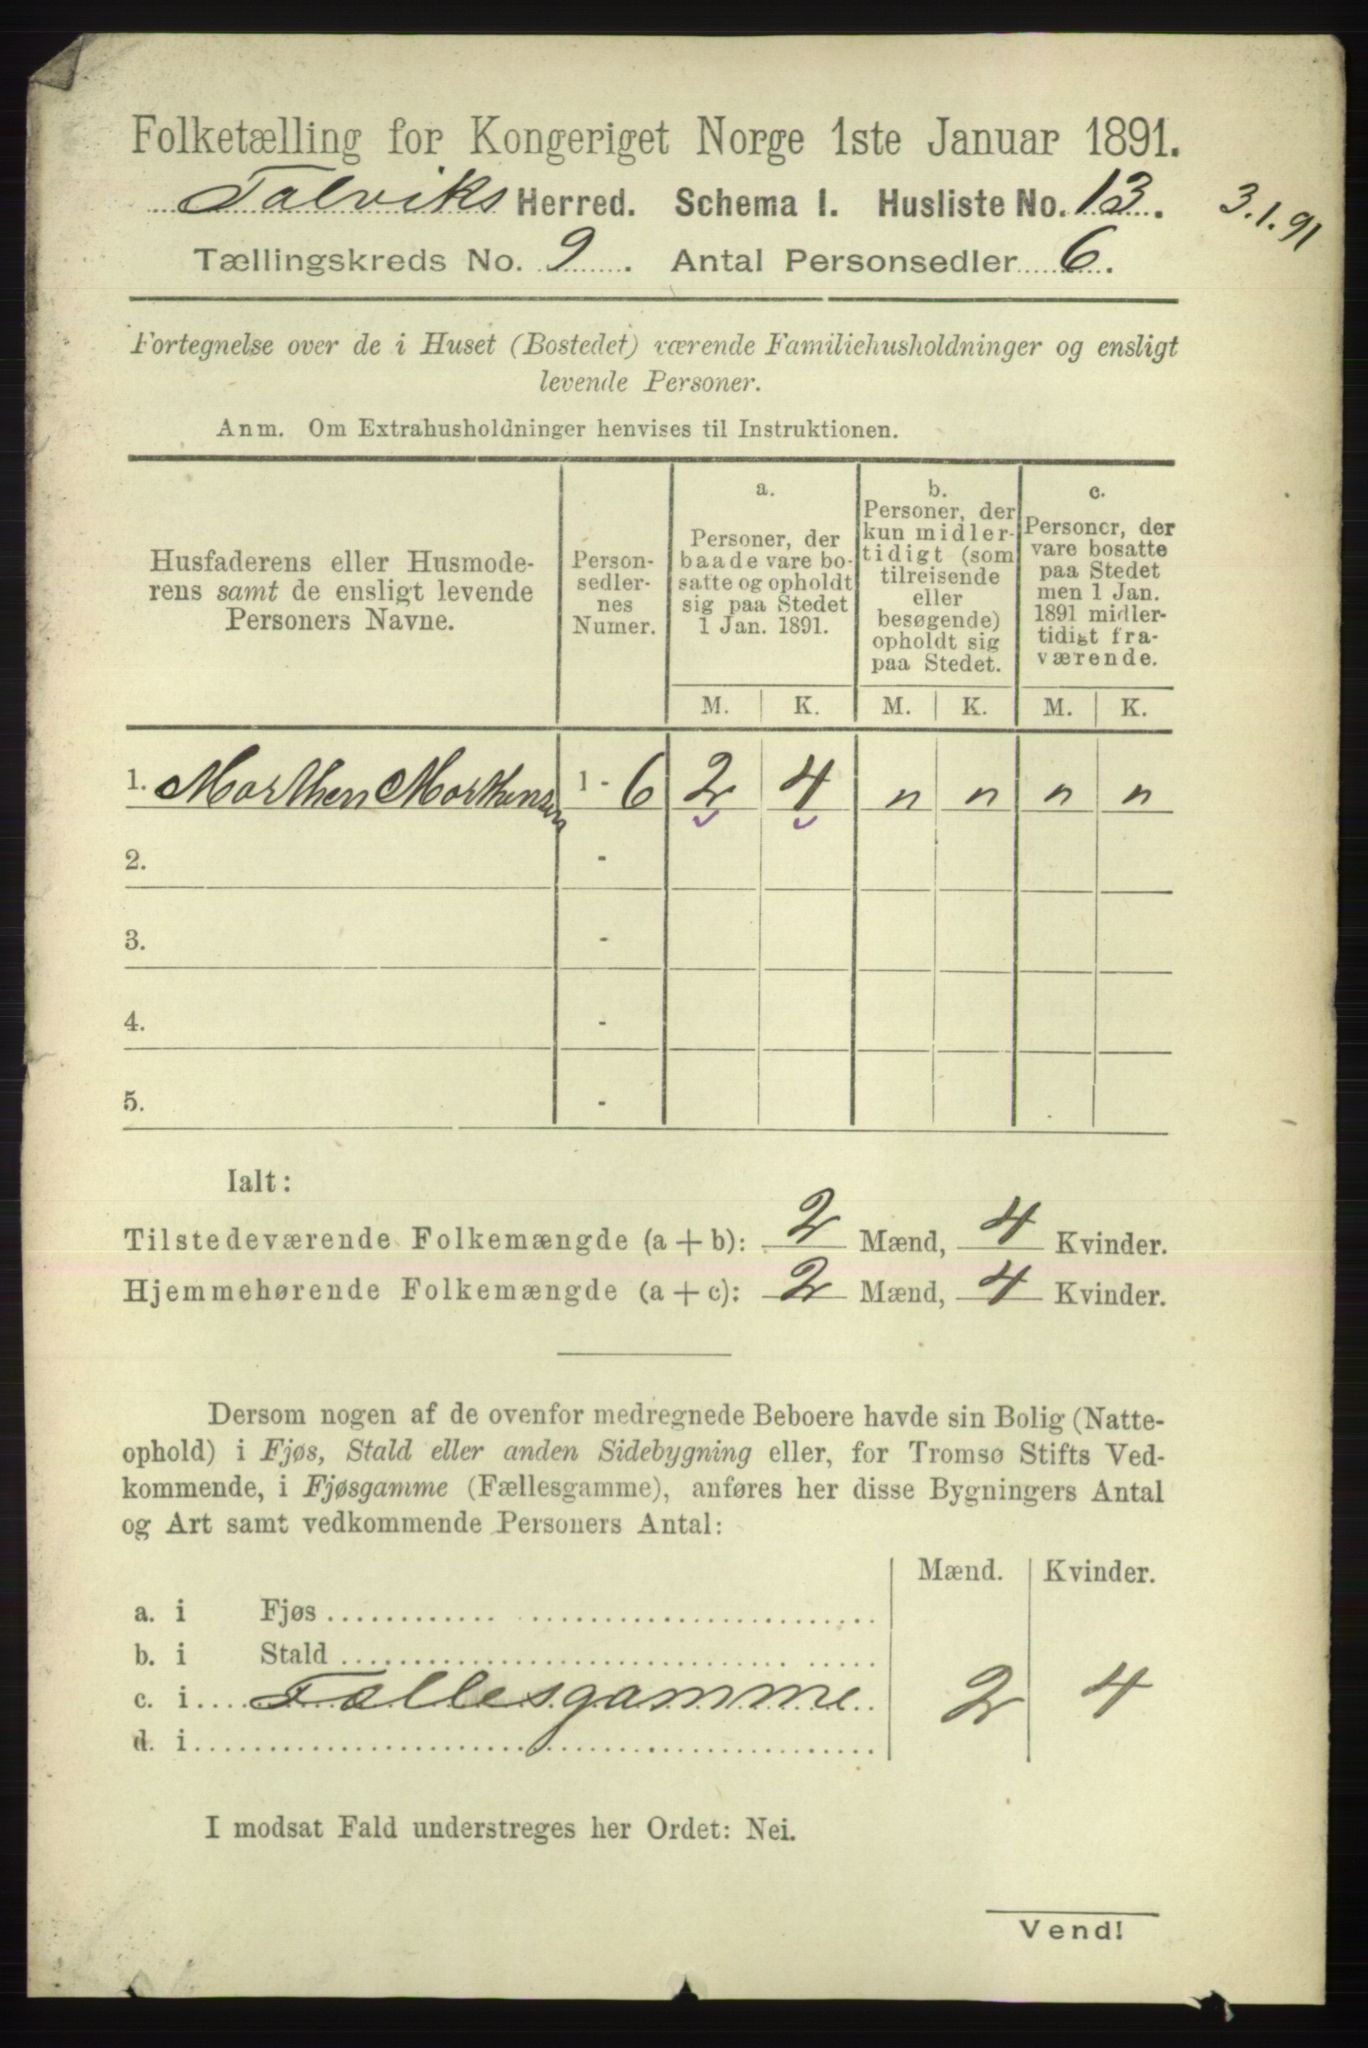 Folketælling for Kongeriget Norge 1ste Januar 1891.
Talviks Herred. Schema I. Husliste No. 13.
3.1.91
Tællingskreds No. 9. Antal Personsedler 6.
Fortegnelse over de i Huset (Bostedet) værende Familiehusholdninger og ensligt
levende Personer.
Anm. Om Extrahusholdninger henvises til Instruktionen.
Husfaderens eller Husmode-
rens samt de ensligt levende
Personers Navne.
Person-
sedler-
nes
Numer.
a.
Personer, der
baade vare bo-
satte og opholdt
sig paa Stedet
1 Jan. 1891.
b.
Personer, der
kun midler-
tidigt (som
tilreisende
eller
besøgende)
opholdt sig
paa Stedet.
c.
Personer, der
vare bosatte
paa Stedet
men 1 Jan.
1891 midler-
tidigt fra-
værende.
M. K. M. K. M. K.
1. Morthen Morthensen 1 - 6 2 4 " " " "
2. -
3. -
4. -
5. -
Ialt:
Tilstedeværende Folkemængde (a + b): 2 Mænd, 4 Kvinder.
Hjemmehørende Folkemængde (a + c): 2 Mænd, 4 Kvinder.
Dersom nogen af de ovenfor medregnede Beboere havde sin Bolig (Natte-
ophold) i Fjøs, Stald eller anden Sidebygning eller, for Tromsø Stifts Ved-
kommende, i Fjøsgamme (Fællesgamme), anføres her disse Bygningers Antal
og Art samt vedkommende Personers Antal:
Mænd. Kvinder.
a. i Fjøs
b. i Stald
c. i Fællesgamme 2 4
d. i
I modsat Fald understreges her Ordet: Nei.
Vend!